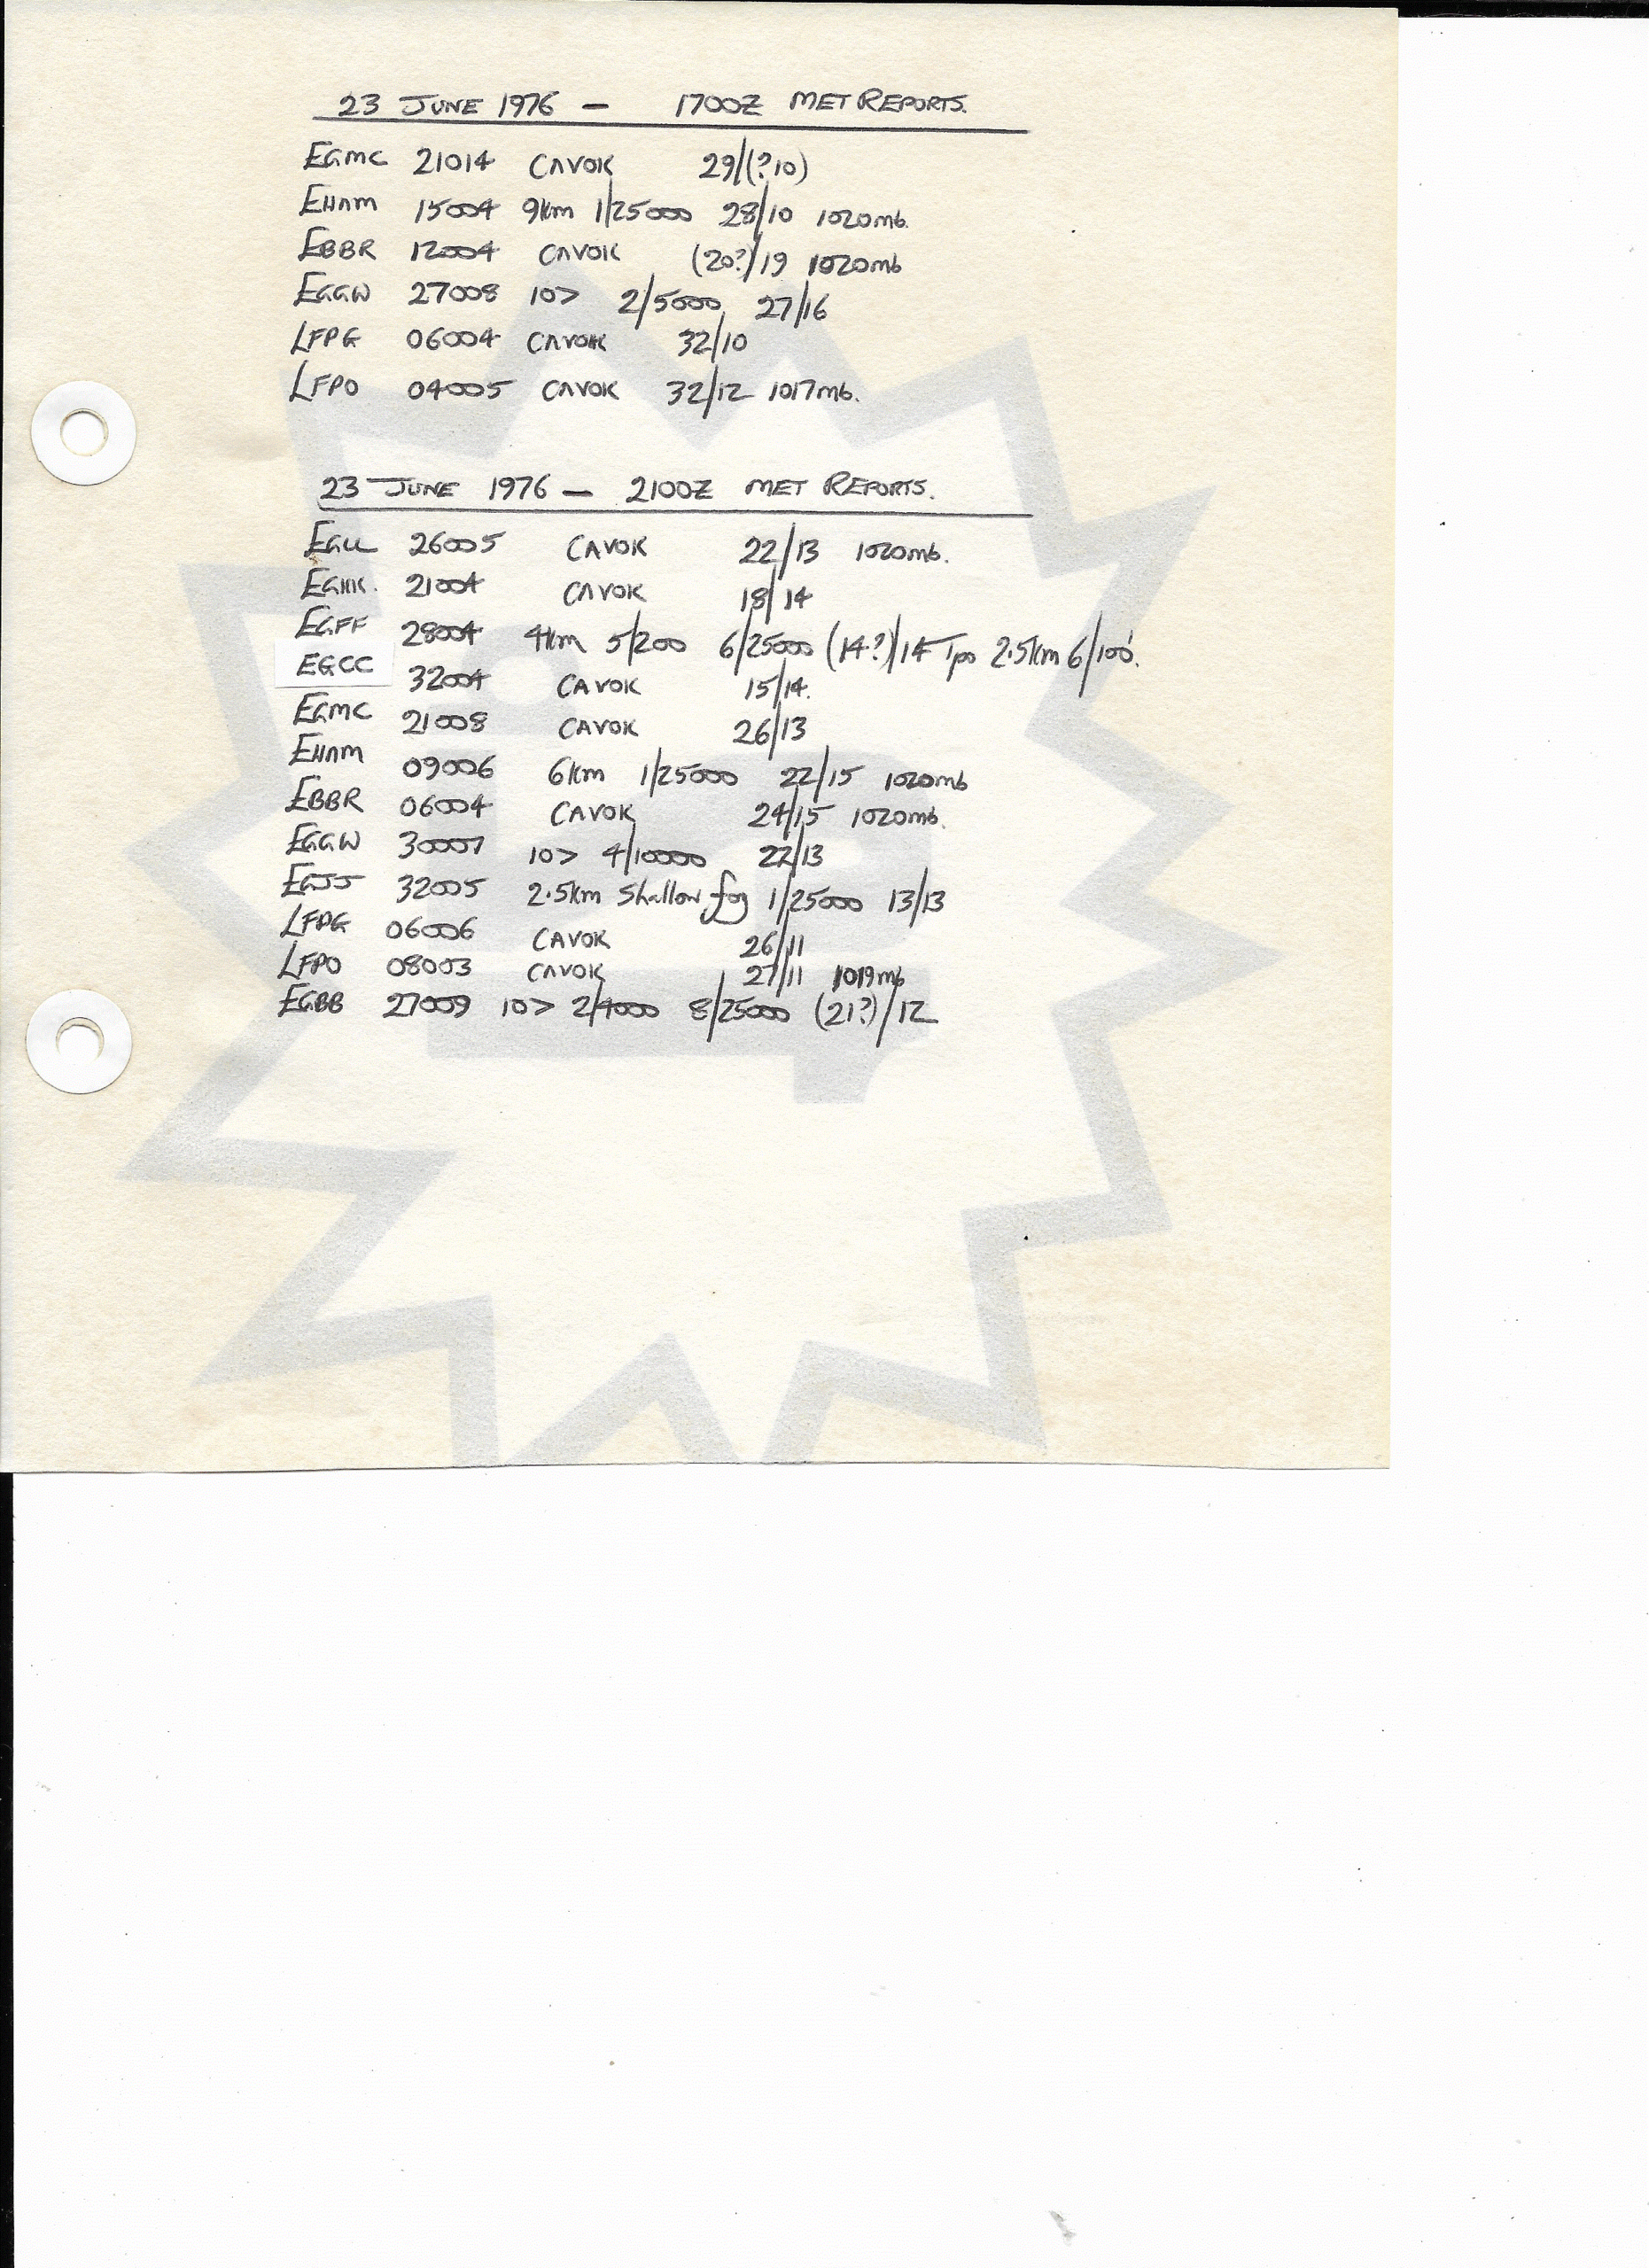 23 JUNE 1976 — 1700Z MET REPORTS.
EGMC 21014 CAVOK 29/(?10)
EHAM 15004 9km 1/25000 28/10 1020mb.
EBBR 12004 CAVOK (20?)/19 1020mb
EGGW 27008 10> 2/5000 27/16
LFPG 06004 CAVOK 32/10
LFPO 04005 CAVOK 32/12 1017mb.
23 JUNE 1976 — 2100Z MET REPORTS.
EGLL 26005 CAVOK 22/13 1020mb.
EGKK. 21004 CAVOK 18/14
EGFF 28004 4km 5/200 6/25000 (14?)/14 Tpo 2.5km 6/100'.
EGCC 32004 CAVOK 15/14.
EGMC 21008 CAVOK 26/13
EHAM 09006 6km 1/25000 22/15 1020mb
EBBR 06004 CAVOK 24/15 1020mb.
EGGW 30007 10> 4/10000 22/13
EGJJ 32005 2.5km Shallow fog 1/25000 13/13
LFPG 06006 CAVOK 26/11
LFPO 08003 CAVOK 27/11 1019mb
EGBB 27009 10> 2/4000 8/25000 (21?)/12